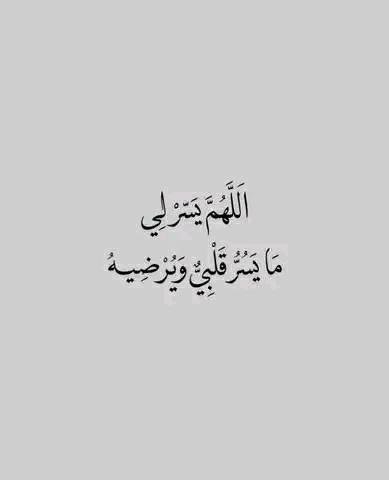 اَللَّهُمَّ يَسّرْ لِي
مَا يَسُرُّ قَلْبِيٌ وَيُرْضِيهُ